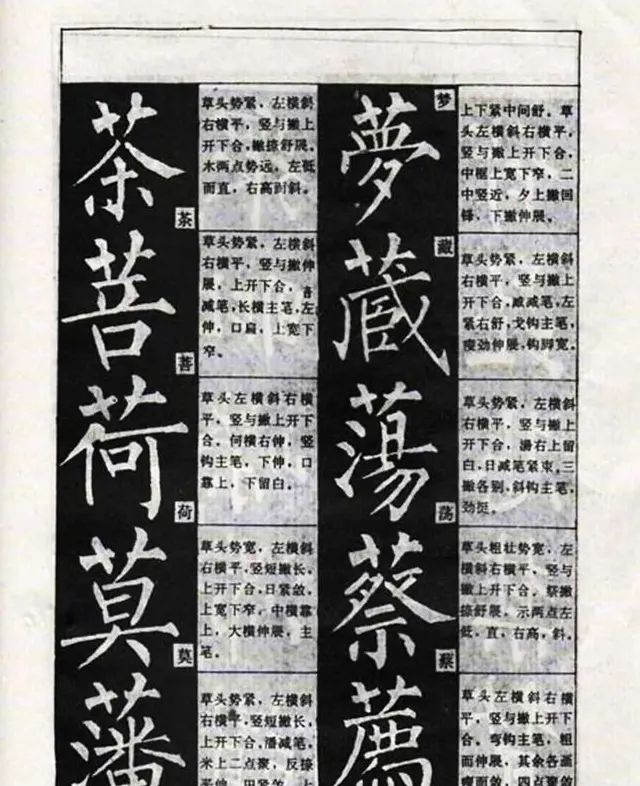 茶
茶
草头势紧，左横斜
右横平，竖与撇上
开下合，撇捺舒展。
木两点势远，左低
而直，右高而斜。
菩
菩
草头势紧，左横斜
右横平，竖与撇伸
展，上开下合，音
减笔，长横主笔，左
伸，口扁，上宽下
窄。
荷
荷
草头左横斜右横
平，竖与撇上开下
合。何横右伸，竖
钩主笔，下伸，口
靠上，下留白。
莫
莫
草头势宽，左横斜
右横平，竖短撇长，
上开下合，日紧敛，
上宽下窄，中横靠
上，大横伸展，主
笔。
藩
草头势紧，左横斜
右横平，竖短撇长，
上开下合，潘减笔，
米上二点聚，反捺
夢
梦
上下紧中间舒。草
头左横斜右横平，
竖与撇上开下合，
中框上宽下窄，二
中竖近，夕上撇回
锋，下撇伸展。
藏
藏
草头势紧，左横斜
右横平，竖与撇上
开下合，臧减笔，左
紧右舒，戈钩主笔，
瘦劲伸展，钩脚宽。
蕩
荡
草头势紧，左横斜
右横平，竖与撇上
开下合，湯右上留
白，日减笔紧束，三
撇各别，斜钩主笔，
劲挺。
蔡
蔡
草头粗壮势宽，左
横斜右横平，竖与
撇上开下合。祭撇
捺舒展，示两点左
低，直，右高，斜。
薦
草头左横斜右横
平，竖与撇上开下
合。弯钩主笔，粗
而伸展，其余各画
瘦而敛，四点聚敛